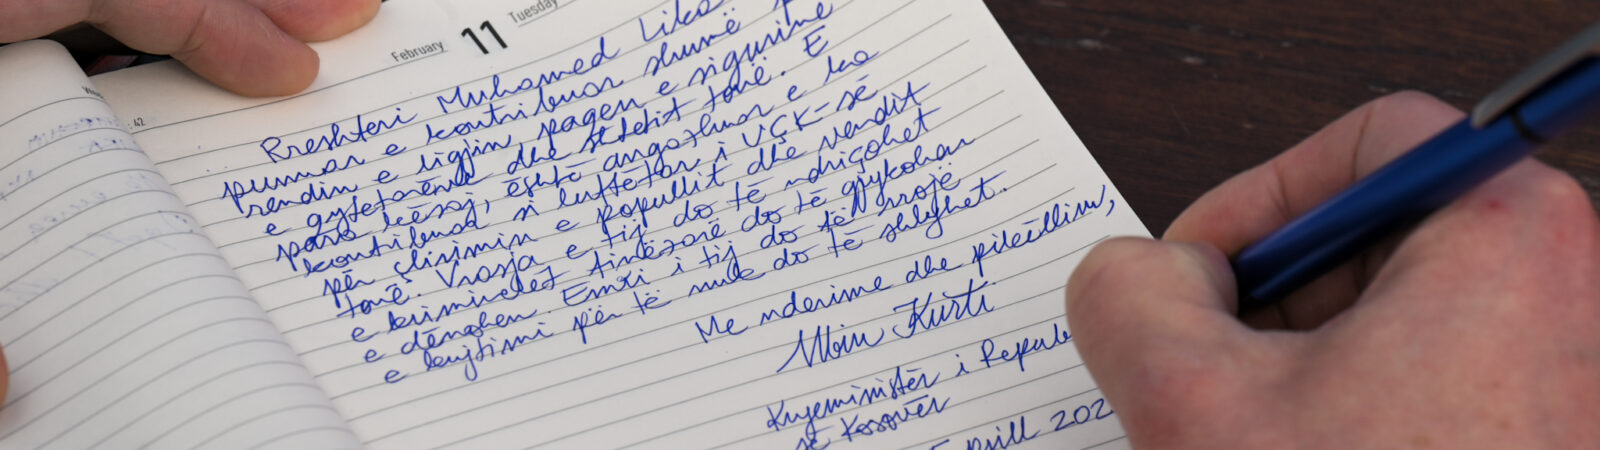 February 11 Tuesday
42
Rreshteri Muhamed Lika
punuar e kontribuar shumë
rendin e ligjin, paqen e sigurinë
e qytetarëve dhe shtetit tonë. E
para kësaj, është angazhuar e ka
kontribuar si luftëtar i UÇK-së
për çlirimin e popullit dhe vendit
tonë. Vrasja e tij do të ndriçohet
e kriminelët tinëzarë do të gjykohen
e dënohen. Emri i tij do të rrojë
e kujtimi për të nuk do të shlyhet.
Me nderime dhe pikëllim,
Albin Kurti
Kryeministër i Repub
së Kosovës
prill 202